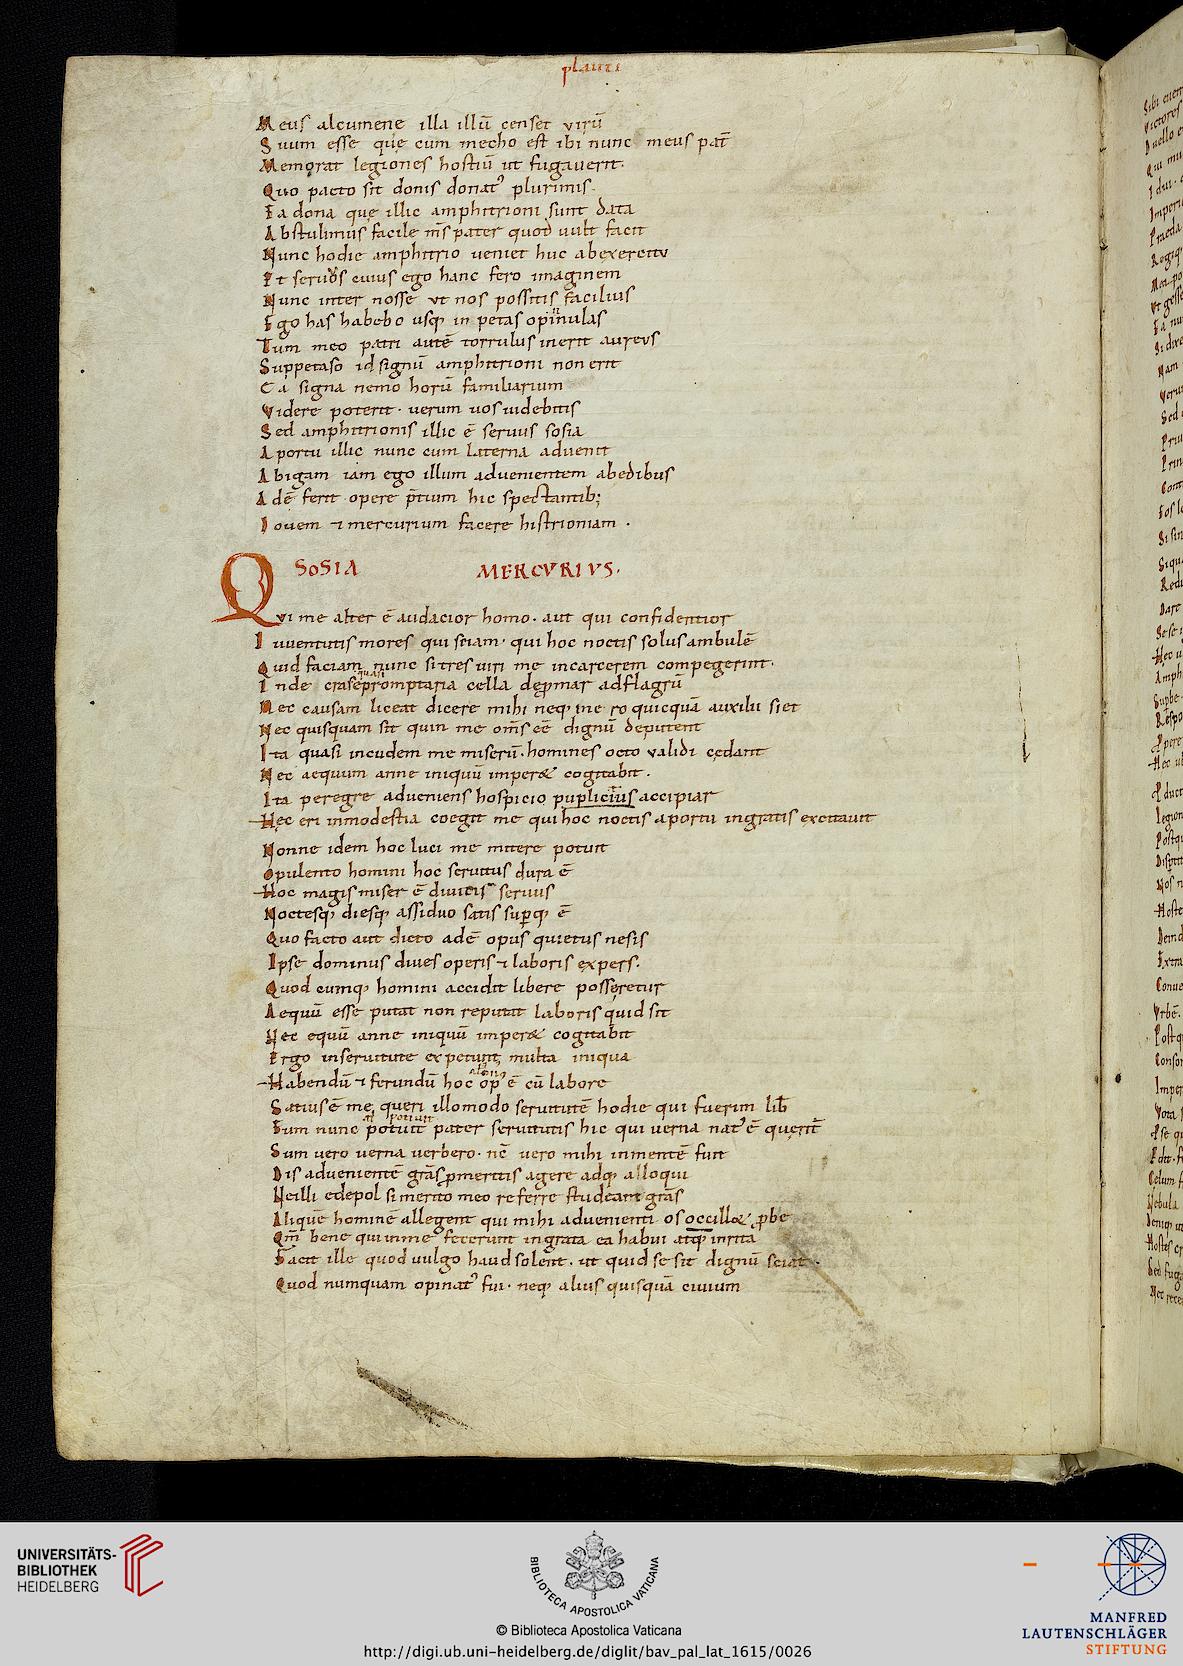 plauti
Meus alcumene illa illū censet virū
Suum esse quę cum mecho est ibi nunc meus pat̄
Memorat legiones hostiū ut fugaverit.
Quo pacto sit donis donatꝰ plurimis.
Ea dona quę illic amphitrioni sunt data
Abstulimus facile m̄s pater quod uult facit
Nunc hodie amphitrio ueniet huc abexercitu
Et seruos cuius ego hanc fero imaginem
Nunc inter nosse ut nos possitis facilius
Ego has habebo usq; in petas opinnulas
Tum meo patri autē torrulus inerit aureus
Suppetaso id signū amphitrioni non erit
Ea signa nemo horū familiarium
Videre poterit. uerum uos uidebitis
Sed amphitrionis illic ē seruus sosia
Aportu illic nunc cum laterna aduenit
Abigam iam ego illum aduenientem abedibus
Adē ferit opere p̄tium hic spectantib;
Iouem ⁊ mercurium facere histrioniam.
SOSIA MERCVRIVS.
Qvi me alter ē audacior homo. aut qui confidentior
Iuuentutis mores qui sciam. qui hoc noctis solus ambulē
Quid faciam nunc si tres uiri me incarcerem compegerint.
quasi
Inde cras epromptaria cella deꝓmar adflagrū
Nec causam liceat dicere mihi neq; in e ro quicquā auxilii siet
Nec quisquam sit quin me om̄s eē dignū deputent
Ita quasi incudem me miserū. homines octo validi cędant
Nec aequum anne iniquū imper& cogitabit.
Ita peregre adueniens hospicio puplicius accipiar
Hęc eri inmodestia coegit me qui hoc noctis aportu ingratis excitauit
Nonne idem hoc luci me mittere potuit
Opulento homini hoc seruitus dura ē
Hoc magis miser ē diuitis seruus
Noctesq; diesq; assiduo satis suꝑq; ē
Quo facto aut dicto adē opus quietus nesis
Ipse dominus diues operis ⁊ laboris expers.
Quod cumq; homini accidit libere posseretur
Aequū esse putat non reputat laboris quid sit
Nec equū anne iniquū imper& cogitabit
Ergo inseruitute expetunt multa iniqua
Habendū ⁊ ferundū hoc opꝰ ē cū labore
Satius ē me queri illo modo seruitutē hodie qui fuerim lib̄
al potiuit
Eum nunc potuit pater seruitutis hic qui uerna natꝰ ē querit̄
Sum uero uerna uerbero. nē uero mihi inmentē fuit
Dis aduenientē grās ꝓmeritis agere adq; alloqui
Neilli edepol si merito meo referre studeant grās
Aliquē hominē allegent qui mihi aduenienti os occill& ꝓbe
Qm̄ bene qui inme fecerunt ingrata ea habui atq; inrita
Facit ille quod uulgo haud solent. ut quid se sit dignū sciat.
Quod numquam opinatꝰ fui. neq; alius quisquā ciuium
UNIVERSITÄTS-
BIBLIOTHEK
HEIDELBERG
BIBLIOTECA APOSTOLICA VATICANA
© Biblioteca Apostolica Vaticana
http://digi.ub.uni-heidelberg.de/diglit/bav_pal_lat_1615/0026
MANFRED
LAUTENSCHLÄGER
STIFTUNG